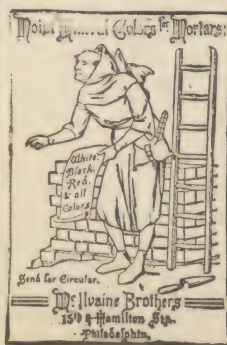 Moist Mineral Colors for Mortars:
White.
Black
Red.
& all
Colors
Send for Circular.
McIlvaine Brothers
15th & Hamilton Sts.
Philadelphia.